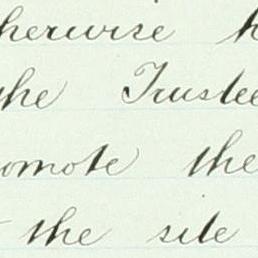 herwise
the Trustee
omote the
the site